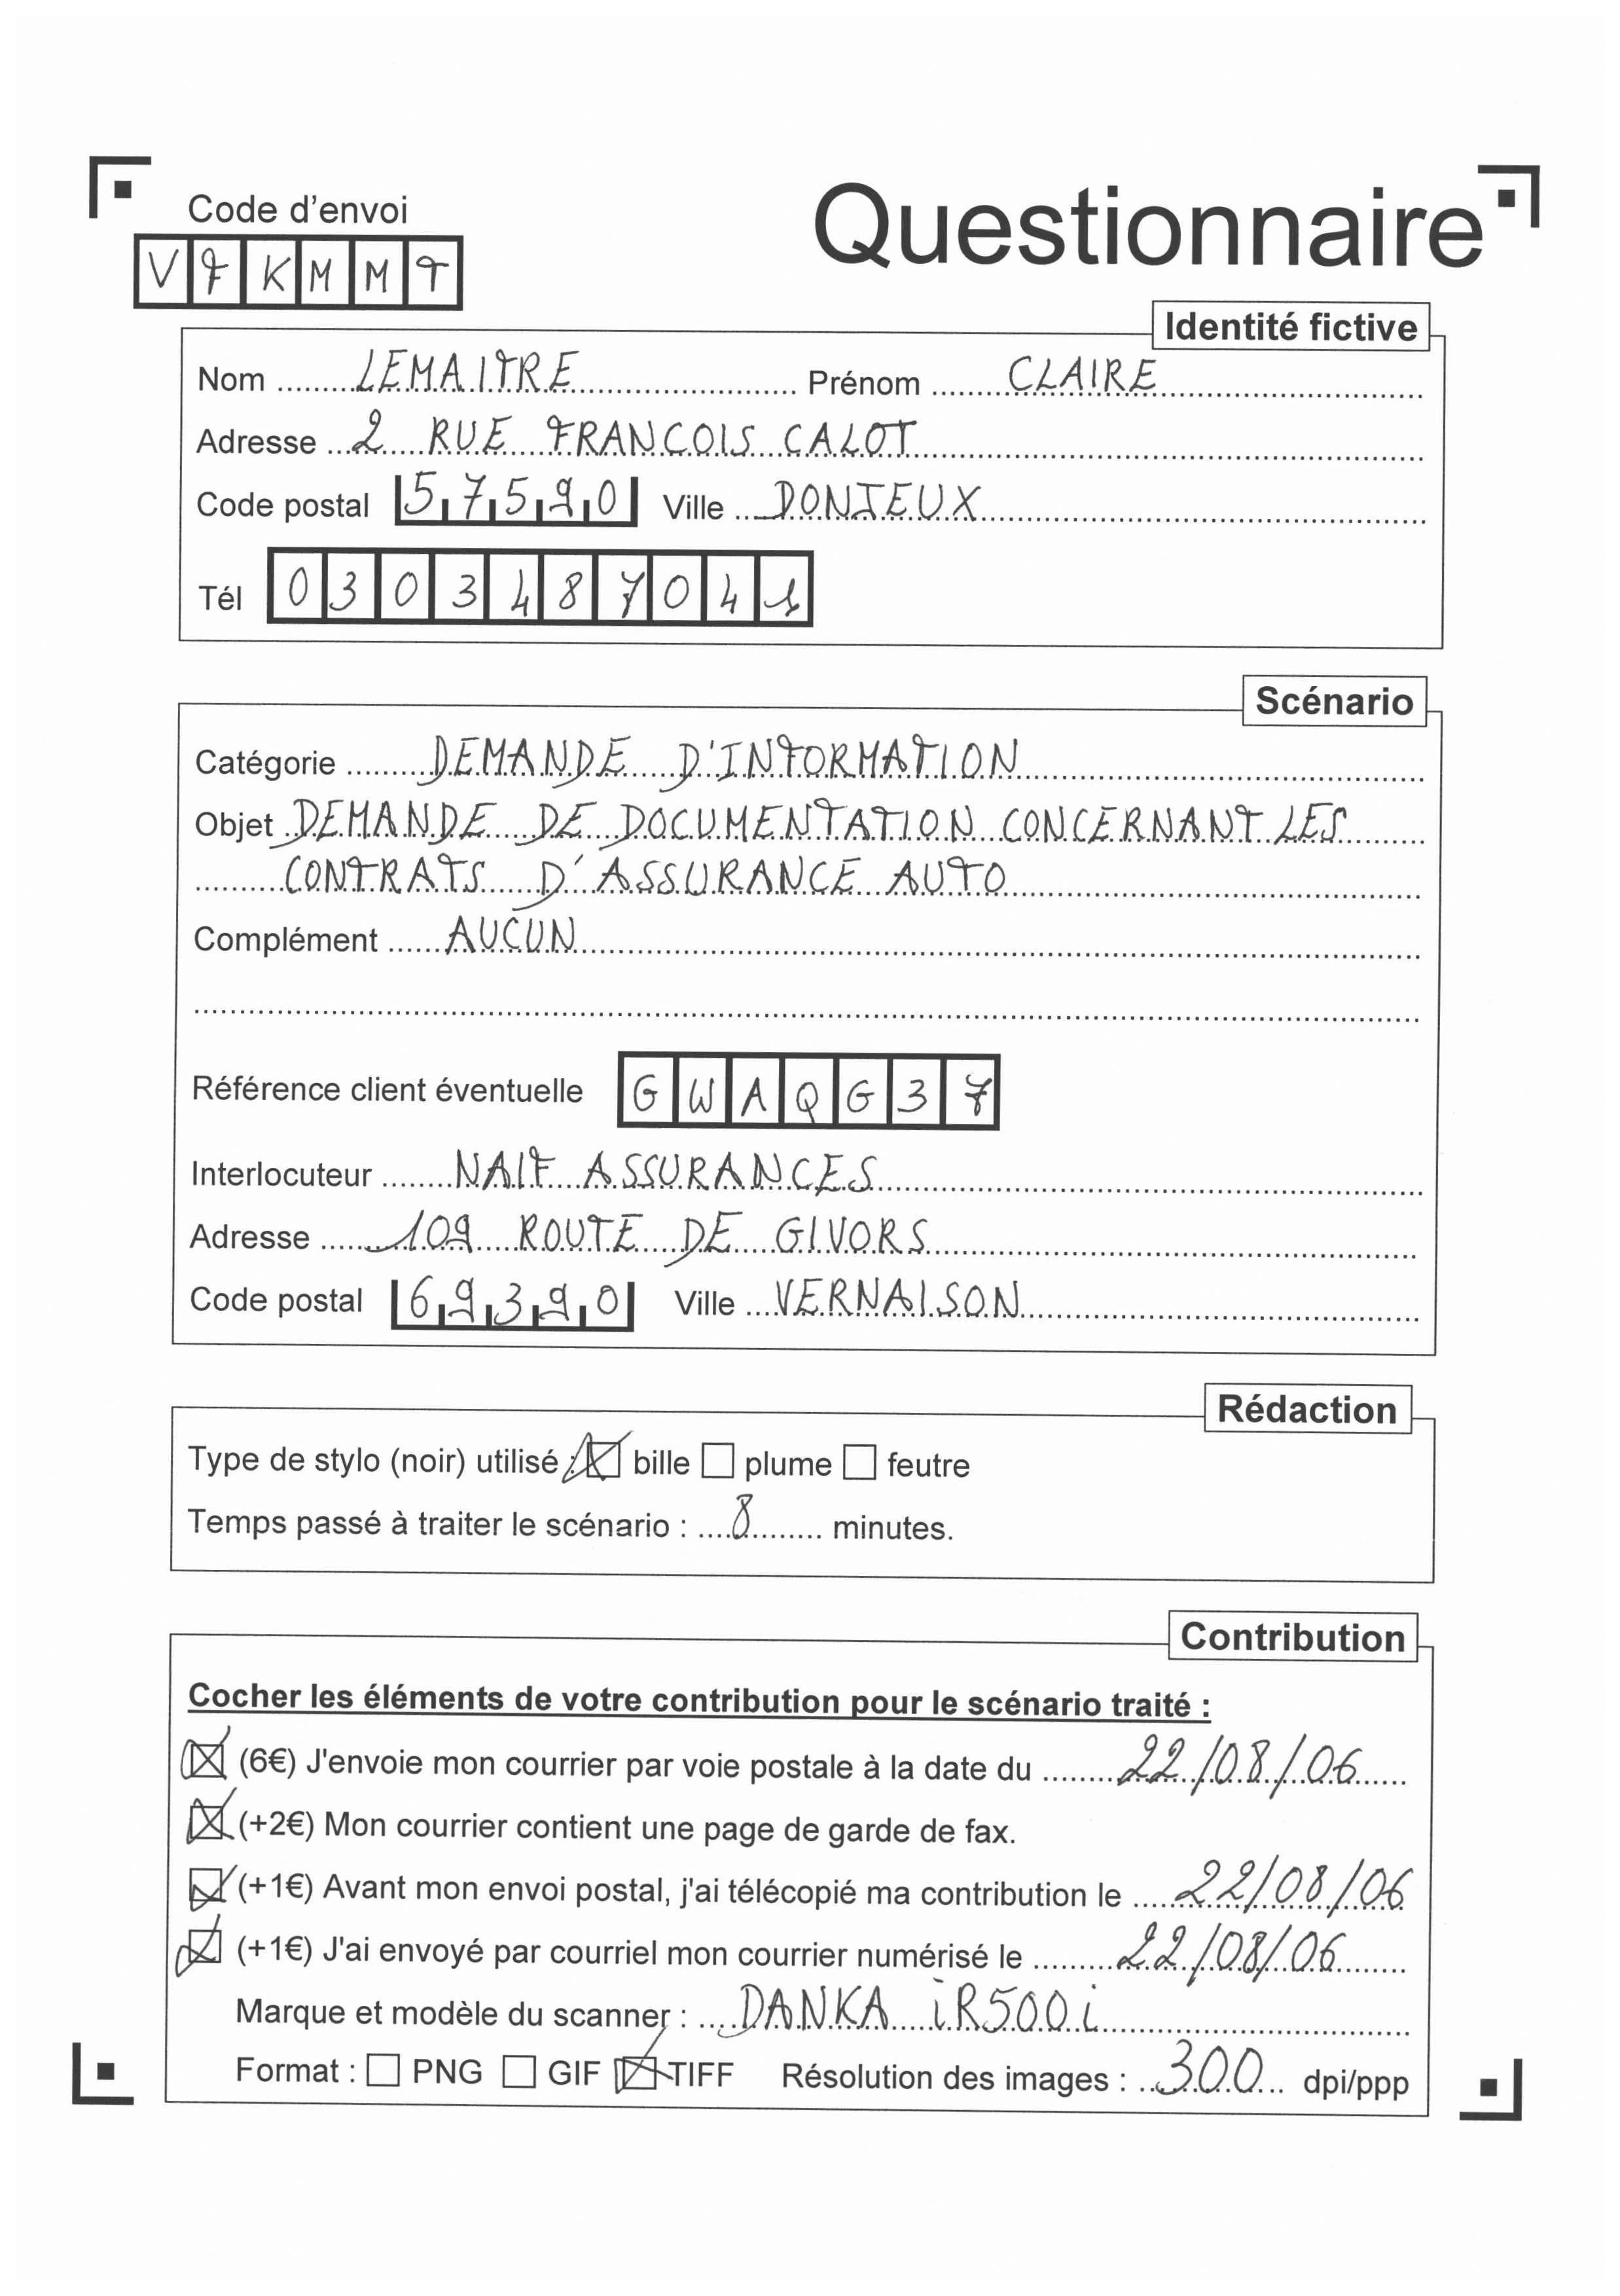 Code d'envoi
Questionnaire
VFKMMT
Identité fictive
Nom LEMAITRE Prénom CLAIRE
Adresse 2 RUE FRANCOIS CALOT
Code postal 57590 Ville DONJEUX
Tél 0303487041
Scénario
Catégorie DEMANDE D'INFORMATION
Objet DEMANDE DE DOCUMENTATION CONCERNANT LES
CONTRATS D'ASSURANCE AUTO
Complément AUCUN
Référence client éventuelle GWAQG37
Interlocuteur NAIF ASSURANCES
Adresse 109 ROUTE DE GIVORS
Code postal 69390 Ville VERNAISON
Rédaction
Type de stylo (noir) utilisé : bille plume feutre
Temps passé à traiter le scénario : 8 minutes.
Contribution
Cocher les éléments de votre contribution pour le scénario traité :
(6€) J'envoie mon courrier par voie postale à la date du 22/08/06
(+2€) Mon courrier contient une page de garde de fax.
(+1€) Avant mon envoi postal, j'ai télécopié ma contribution le 22/08/06
(+1€) J'ai envoyé par courriel mon courrier numérisé le 22/08/06
Marque et modèle du scanner : DANKA iR500i
Format : PNG GIF TIFF Résolution des images : 300 dpi/ppp